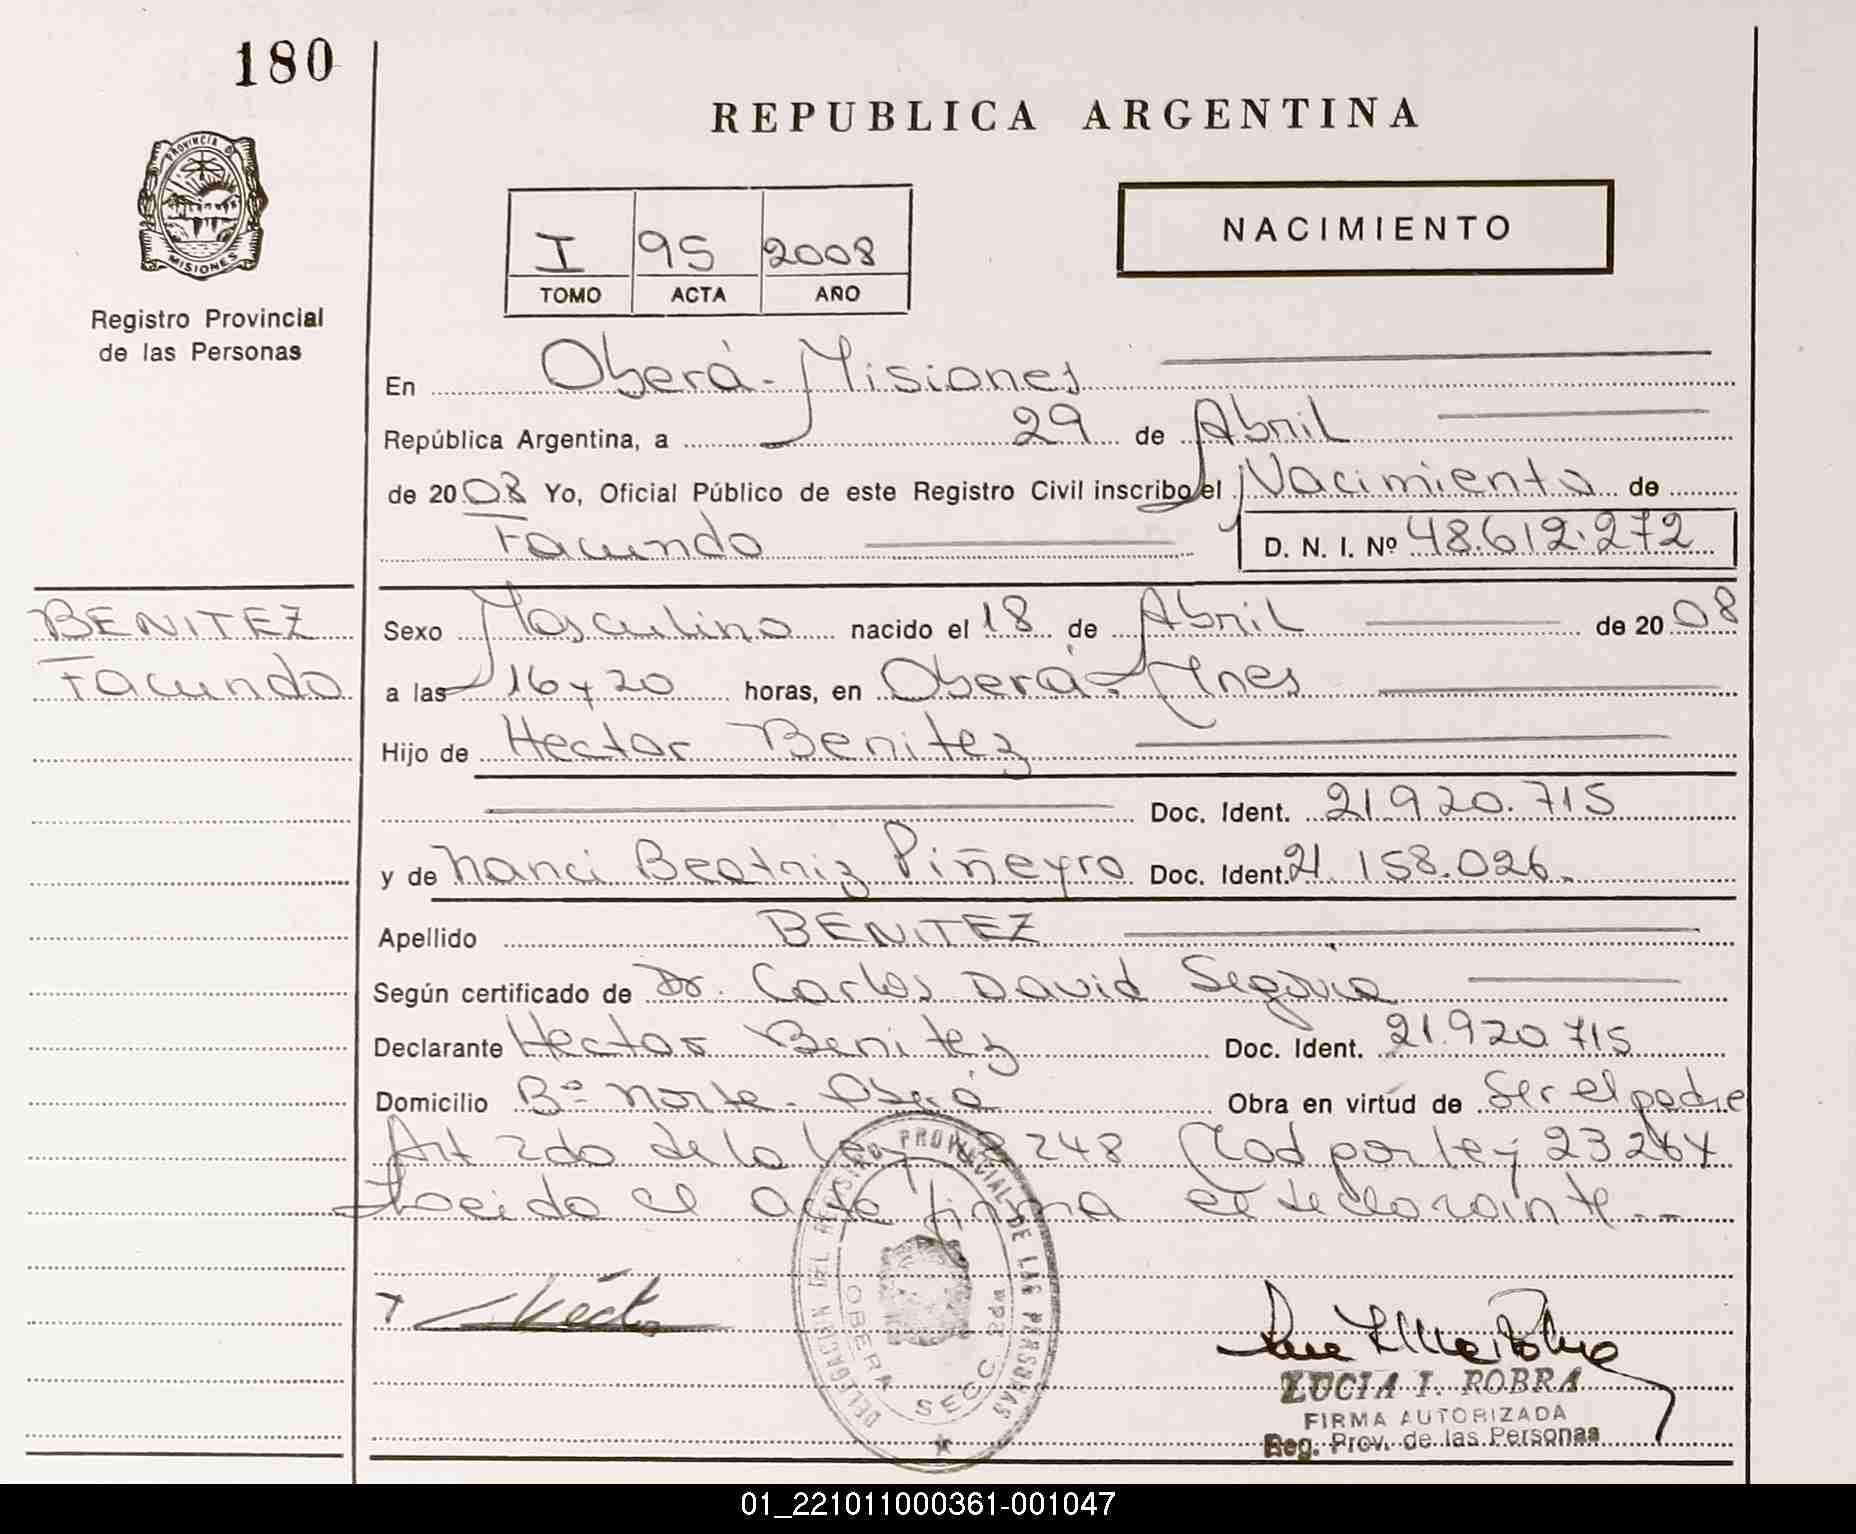 180
REPUBLICA ARGENTINA
PROVINCIA D
MISIONES
Registro Provincial
de las Personas
NACIMIENTO
I 95 2008
TOMO ACTA AÑO
En Oberá - Misiones
República Argentina, a 29 de Abril
de 2008 Yo, Oficial Público de este Registro Civil inscribo el Nacimiento de
Facundo D. N. I. Nº 48.612.272
BENITEZ
Facundo
Sexo Masculino nacido el 18 de Abril de 2008
a las 16 y 20 horas, en Oberá - Mnes
Hijo de Hector Benitez
Doc. Ident. 21920.715
y de Nanci Beatriz Piñeyro Doc. Ident. 21.158.026.
Apellido BENITEZ
Según certificado de Dr. Carlos David Segovia
Declarante Hector Benitez Doc. Ident. 21.920.715
Domicilio Bº Norte - Oberá Obra en virtud de Ser el padre
Art 2do de la Ley 248 Mod por ley 23264
Leido el acta firma el declarante
DELEGACION DEL REGISTRO PROVINCIAL DE LAS PERSONAS
OBERA SECC.
LUCIA I. ROBRA
FIRMA AUTORIZADA
Reg. Prov. de las Personas
01_221011000361-001047